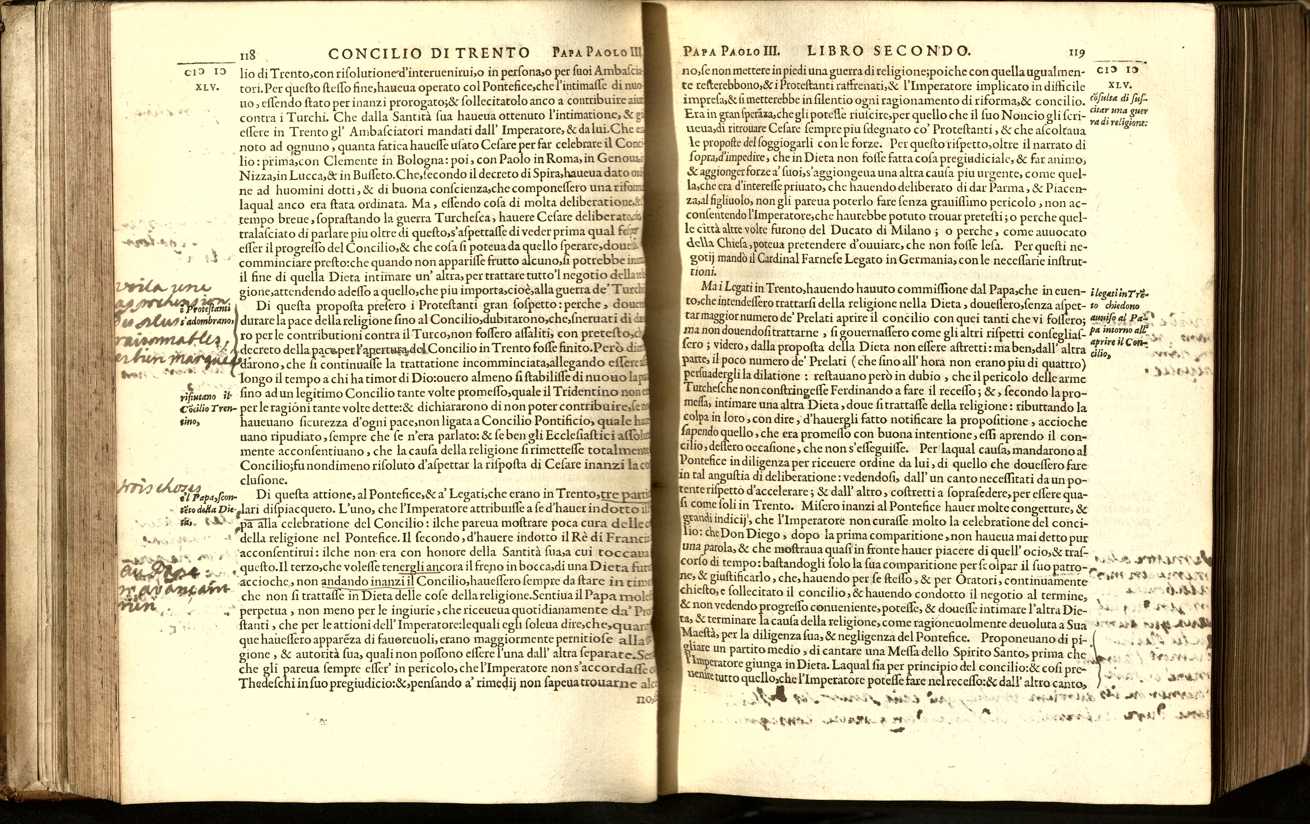 118 CONCILIO DI TRENTO PAPA PAOLO III.
CIↃ IↃ
XLV.
lio di Trento, con risolutione d'interuenirui, o in persona, o per suoi Ambascia-
tori. Per questo stesso fine, haueua operato col Pontefice, che l'intimasse di nuo-
uo, essendo stato per inanzi prorogato; & sollecitatolo anco a contribuire
contra i Turchi. Che dalla Santità sua haueua ottenuto l'intimatione, &
essere in Trento gl' Ambasciatori mandati dall' Imperatore, & da lui. Che
noto ad ognuno, quanta fatica hauesse usato Cesare per far celebrare il Conci-
lio: prima, con Clemente in Bologna: poi, con Paolo in Roma, in Genoua,
Nizza, in Lucca, & in Busseto. Che, secondo il decreto di Spira, haueua dato
ne ad huomini dotti, & di buona conscienza, che componessero una riforma
laqual anco era stata ordinata. Ma, essendo cosa di molta deliberatione, &
tempo breue, soprastando la guerra Turchesca, hauere Cesare deliberato,
tralasciato di parlare piu oltre di questo, s'aspettasse di veder prima qual
esser il progresso del Concilio, & che cosa si poteua da quello sperare,
comminciare presto: che quando non apparisse frutto alcuno, si potrebbe
il fine di quella Dieta intimare un' altra, per trattare tutto'l negotio della
gione, attendendo adesso a quello, che piu importa, cioè, alla guerra de' Turchi
Di questa proposta presero i Protestanti gran sospetto: perche,
durare la pace della religione sino al Concilio, dubitarono, che, sneruati di
ro per le contributioni contra il Turco, non fossero assaliti, con pretesto,
decreto della pace per l'apertura del Concilio in Trento fosse finito. Però
darono, che si continuasse la trattatione incomminciata, allegando essere
longo il tempo a chi ha timor di Dio: ouero almeno si stabilisse di nuouo la
sino ad un legitimo Concilio tante volte promesso, quale il Tridentino non
per le ragioni tante volte dette: & dichiararono di non poter contribuire,
haueuano sicurezza d'ogni pace, non ligata a Concilio Pontificio, quale
uano ripudiato, sempre che se n'era parlato: & se ben gli Ecclesiastici
mente acconsentiuano, che la causa della religione si rimettesse totalmente
Concilio; fu nondimeno risoluto d'aspettar la risposta di Cesare inanzi la
clusione.
Di questa attione, al Pontefice, & a' Legati, che erano in Trento, tre parti
lari dispiacquero. L'uno, che l'Imperatore attribuisse a se d'hauer indotto il
pa alla celebratione del Concilio: ilche pareua mostrare poca cura delle
della religione nel Pontefice. Il secondo, d'hauere indotto il Rè di Francia
acconsentirui: ilche non era con honore della Santità sua, a cui toccaua
questo. Il terzo, che volesse tenergli ancora il freno in bocca, di una Dieta
accioche, non andando inanzi il Concilio, hauessero sempre da stare in
che non si trattasse in Dieta delle cose della religione. Sentiua il Papa
perpetua, non meno per le ingiurie, che riceueua quotidianamente da' Pro
stanti, che per le attioni dell' Imperatore: lequali egli soleua dire, che,
que hauessero apparẽza di fauoreuoli, erano maggiormente pernitiose alla
gione, & autorità sua, quali non possono essere l'una dall' altra separate.
che gli pareua sempre esser' in pericolo, che l'Imperatore non s'accordasse
Thedeschi in suo pregiudicio: &, pensando a' rimedij non sapeua trouarne
no,
i Protestanti
s'adombrano,
rifiutano il
Cõcilio Tren-
tino,
il Papa, scon-
tẽto della Die-
ta.
voila une
apprehension
raisonnables,
et bien marquee
trois choses
PAPA PAOLO III. LIBRO SECONDO. 119
CIↃ IↃ
XLV.
no, se non mettere in piedi una guerra di religione; poiche con quella ugualmen-
te resterebbono, & i Protestanti raffrenati, & l'Imperatore implicato in difficile
impresa, & si metterebbe in silentio ogni ragionamento di riforma, & concilio.
Era in gran sperãza, che gli potesse riuscire, per quello che il suo Noncio gli scri-
ueua, di ritrouar Cesare sempre piu sdegnato co' Protestanti, & che ascoltaua
le proposte del soggiogarli con le forze. Per questo rispetto, oltre il narrato di
sopra, d'impedire, che in Dieta non fosse fatta cosa pregiudiciale, & far animo,
& aggionger forze a' suoi, s'aggiongeua una altra causa piu urgente, come quel-
la, che era d'interesse priuato, che hauendo deliberato di dar Parma, & Piacen-
za, al figliuolo, non gli pareua poterlo fare senza grauissimo pericolo, non ac-
consentendo l'Imperatore, che haurebbe potuto trouar pretesti; o perche quel-
le città altre volte furono del Ducato di Milano; o perche, come auuocato
della Chiesa, poteua pretendere d'ouuiare, che non fosse lesa. Per questi ne-
gotij mandò il Cardinal Farnese Legato in Germania, con le necessarie instrut-
tioni.
Ma i Legati in Trento, hauendo hauuto commissione dal Papa, che in euen-
to, che intendessero trattarsi della religione nella Dieta, douessero, senza aspet-
tar maggior numero de' Prelati aprire il concilio con quei tanti che vi fossero;
ma non douendosi trattarne, si gouernassero come gli altri rispetti consiglias-
sero; videro, dalla proposta della Dieta non essere astretti: ma ben, dall' altra
parte, il poco numero de' Prelati (che sino all' hora non erano piu di quattro)
persuadergli la dilatione: restauano però in dubio, che il pericolo delle arme
Turchesche non constringesse Ferdinando a fare il recesso; &, secondo la pro-
messa, intimare una altra Dieta, doue si trattasse della religione: ributtando la
colpa in loro, con dire, d'hauergli fatto notificare la propositione, accioche
sapendo quello, che era promesso con buona intentione, essi aprendo il con-
cilio, dessero occasione, che non s'esseguisse. Per laqual causa, mandarono al
Pontefice in diligenza per riceuere ordine da lui, di quello che douessero fare
in tal angustia di deliberatione: vedendosi, dall' un canto necessitati da un po-
tente rispetto d'accelerare; & dall' altro, costretti a soprasedere, per essere qua-
si come soli in Trento. Misero inanzi al Pontefice hauer molte congetture, &
grandi indicij, che l'Imperatore non curasse molto la celebratione del conci-
lio: che Don Diego, dopo la prima comparitione, non haueua mai detto pur
una parola, & che mostraua quasi in fronte hauer piacere di quell' ocio, & tras-
corso di tempo: bastandogli solo la sua comparitione per scolpar il suo patro-
ne, & giustificarlo, che, hauendo per se stesso, & per Oratori, continuamente
chiesto, e sollecitato il concilio, & hauendo condotto il negotio al termine,
& non vedendo progresso conueniente, potesse, & douesse intimare l'altra Die-
ta, & terminare la causa della religione, come ragioneuolmente deuoluta a Sua
Maestà, per la diligenza sua, & negligenza del Pontefice. Proponeuano di pi-
gliare un partito medio, di cantare una Messa dello Spirito Santo, prima che
l'Imperatore giunga in Dieta. Laqual sia per principio del concilio: & cosi pre-
uenire tutto quello, che l'Imperatore potesse fare nel recesso: & dall' altro canto,
cõsulta di sus-
citar una guer
ra di religione:
i legati in Trẽ-
to chiedono
auuiso al Pa-
pa intorno all'
aprire il Con-
cilio,